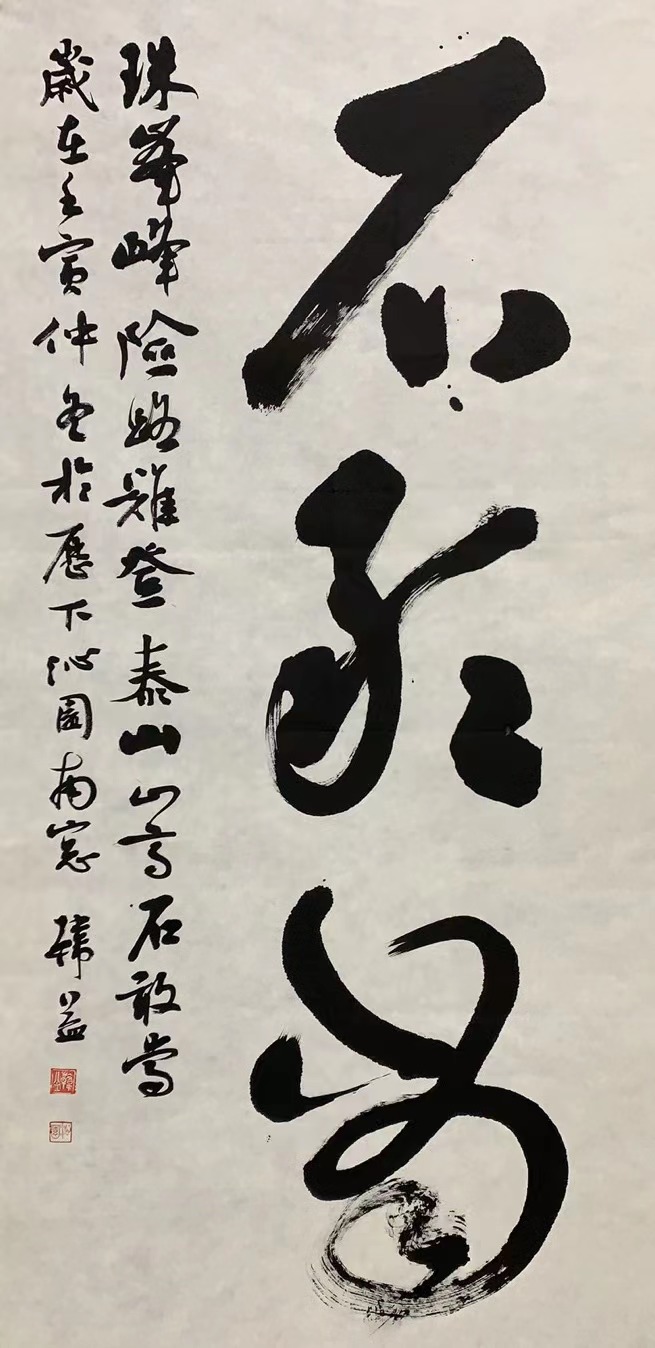 石敢當
珠峯峰險路難登泰山山高石敢當
歲在壬寅仲冬於歷下沁園南窓 韓益